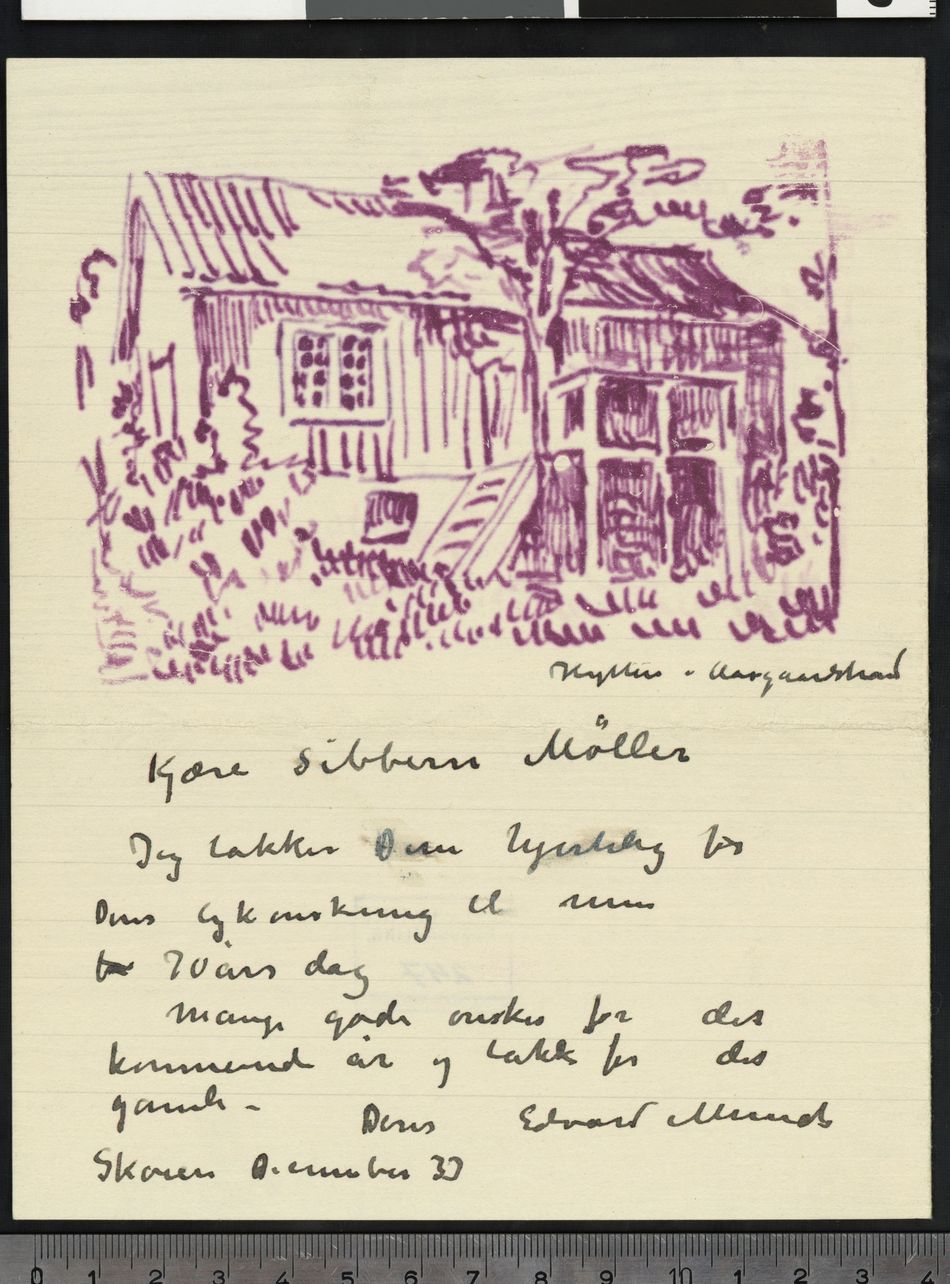 Hytten i Aasgaardstrand
Kjære Sibbern Möller
Jeg takker Dem hjertelig for
Deres lykønskning til min
70 års dag
Mange gode ønsker for det
kommende år og takk for det
gamle -
Deres Edvard Munch
Skøien December 33
0 1 2 3 4 5 6 7 8 9 10 1 2 3 4